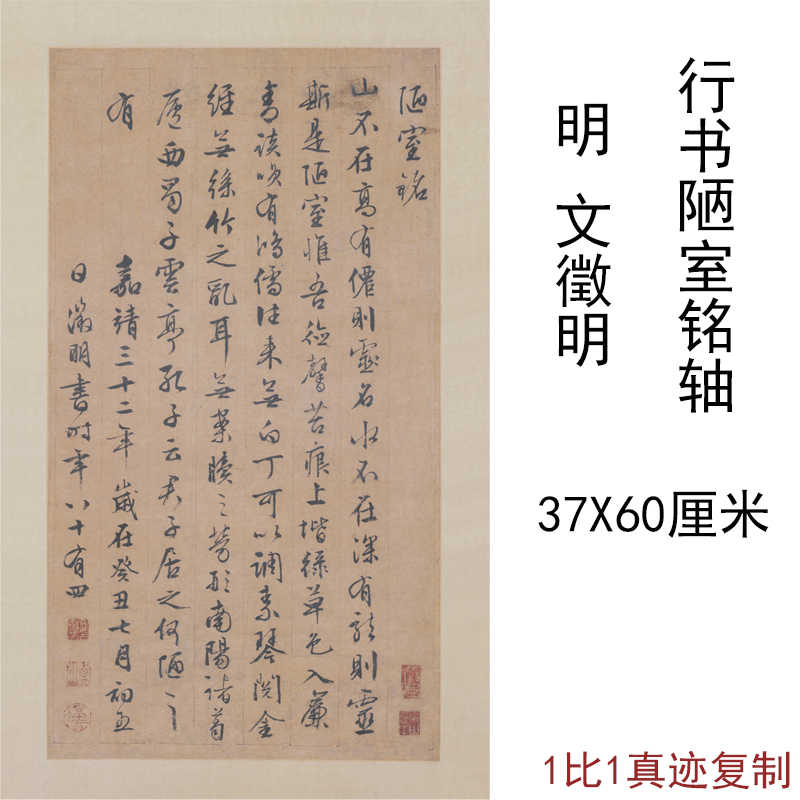 陋室銘
山不在高有僊則靈名水不在深有龍則靈
斯是陋室惟吾德馨苔痕上堦綠草色入簾
青談咲有鴻儒往来無白丁可以調素琴閱金
經無絲竹之亂耳無案牘之勞形南陽諸葛
廬西蜀子雲亭孔子云君子居之何陋之
有
嘉靖三十二年歲在癸丑七月初五
日徵明書時年八十有四
行书陋室铭轴
明 文徵明
37X60厘米
1比1真迹复制